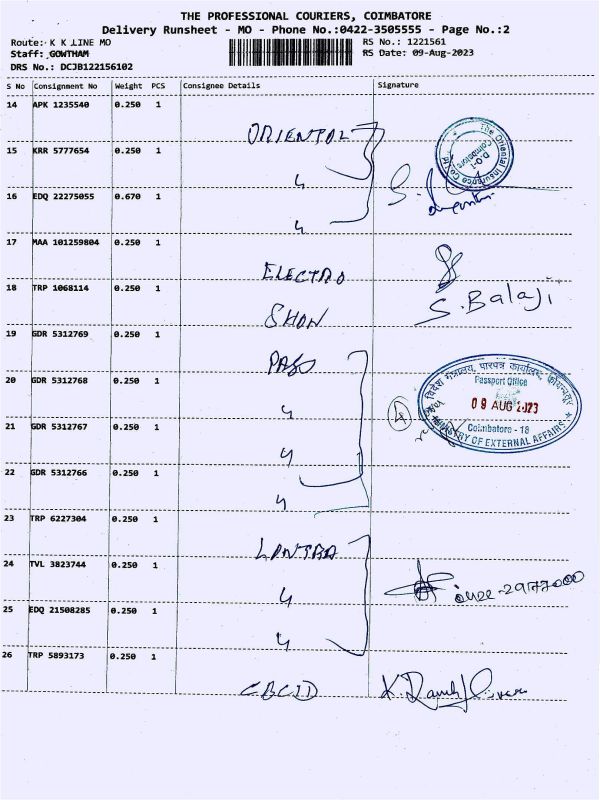 THE PROFESSIONAL COURIERS, COIMBATORE
Delivery Runsheet - MO - Phone No.:0422-3505555 - Page No.:2
Route: K K LINE MO
RS No.: 1221561
Staff: GOWTHAM
RS Date: 09-Aug-2023
DRS No.: DCJB122156102
S No Consignment No Weight PCS Consignee Details Signature
14 APK 1235540 0.250 1
ORIENTAL
15 KRR 5777654 0.250 1
16 EDQ 22275055 0.670 1
The Oriental Insurance Co Ltd
D.O-1
Coimbatore
17 MAA 101259804 0.250 1
ELECTRO
18 TRP 1068114 0.250 1
S. Balaji
19 GDR 5312769 0.250 1
20 GDR 5312768 0.250 1
विदेश मंत्रालय, पारपत्र कार्यालय, कोयम्बत्तूर
Passport Office
09 AUG 2023
Coimbatore - 18
MINISTRY OF EXTERNAL AFFAIRS
21 GDR 5312767 0.250 1
22 GDR 5312766 0.250 1
23 TRP 6227304 0.250 1
24 TVL 3823744 0.250 1
25 EDQ 21508285 0.250 1
26 TRP 5893173 0.250 1
CBCID